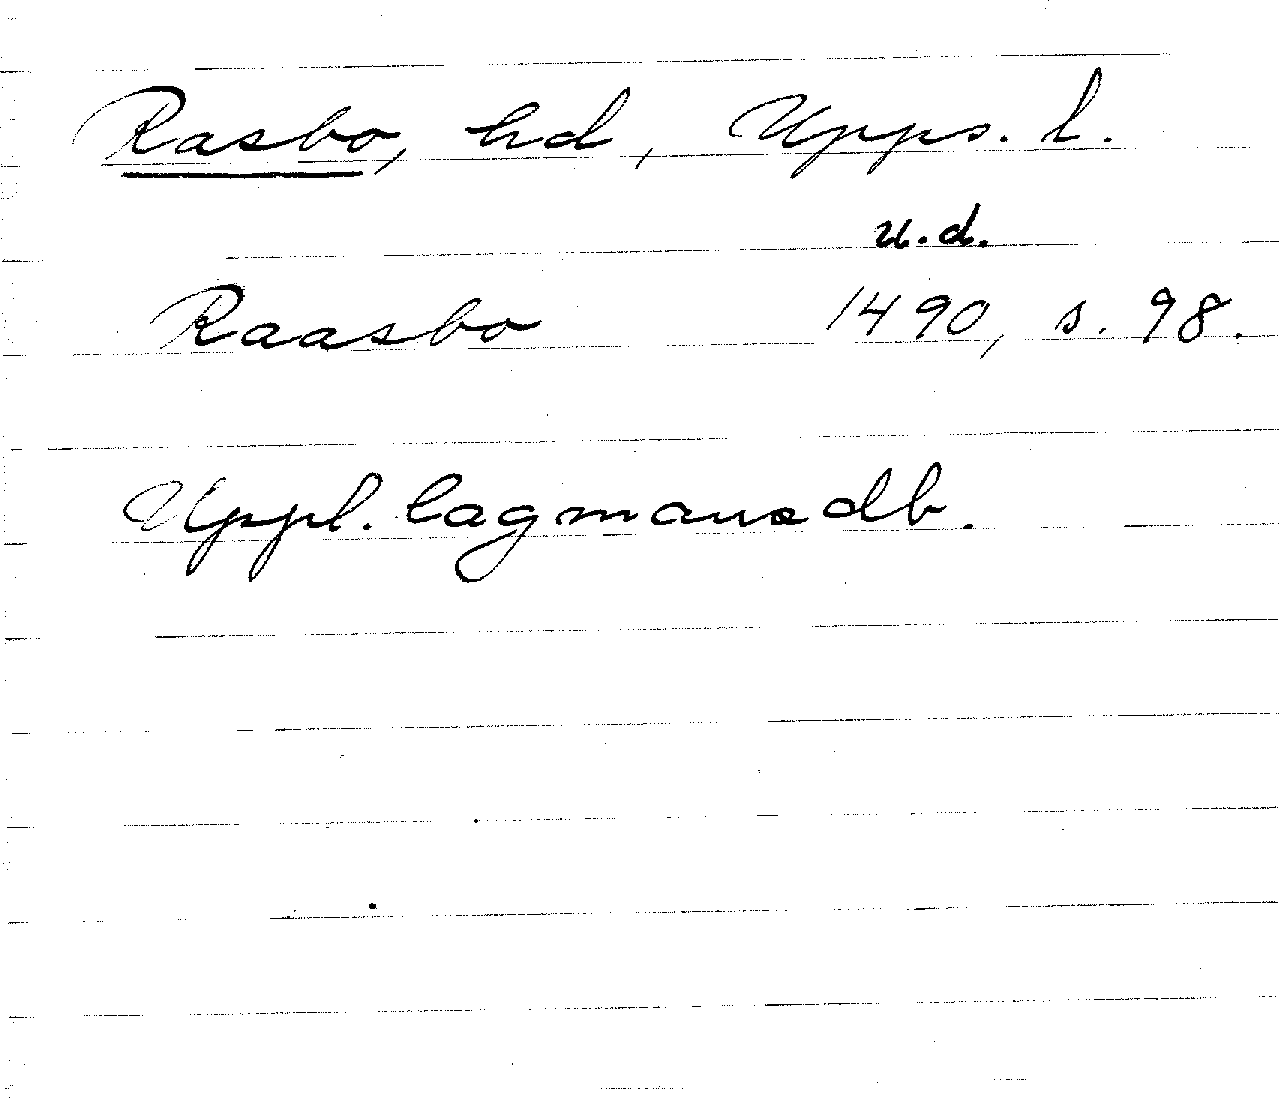 Rasbo, hd, Upps. l.
u.d.
Raasbo 1490, s. 98.
Uppl. lagmansdb.